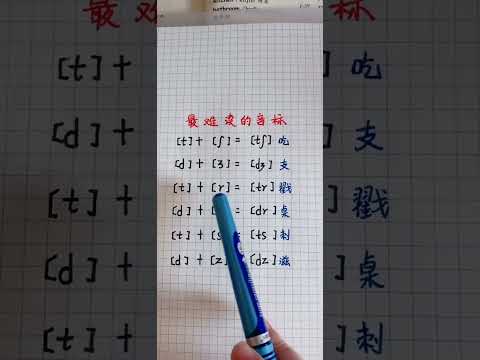 bathroom
最难读的音标
[t] + [ʃ] = [tʃ] 吃
[d] + [ʒ] = [dʒ] 支
[t] + [r] = [tr] 戳
[d] + = [dr] 桌
[t] + [s] = [ts] 刺
[d] + [z] = [dz] 滋